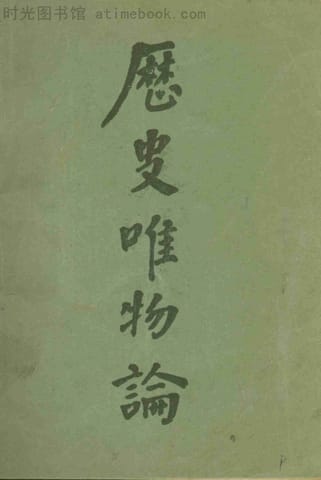 时光图书馆 - atimebook.com
歷史唯物論